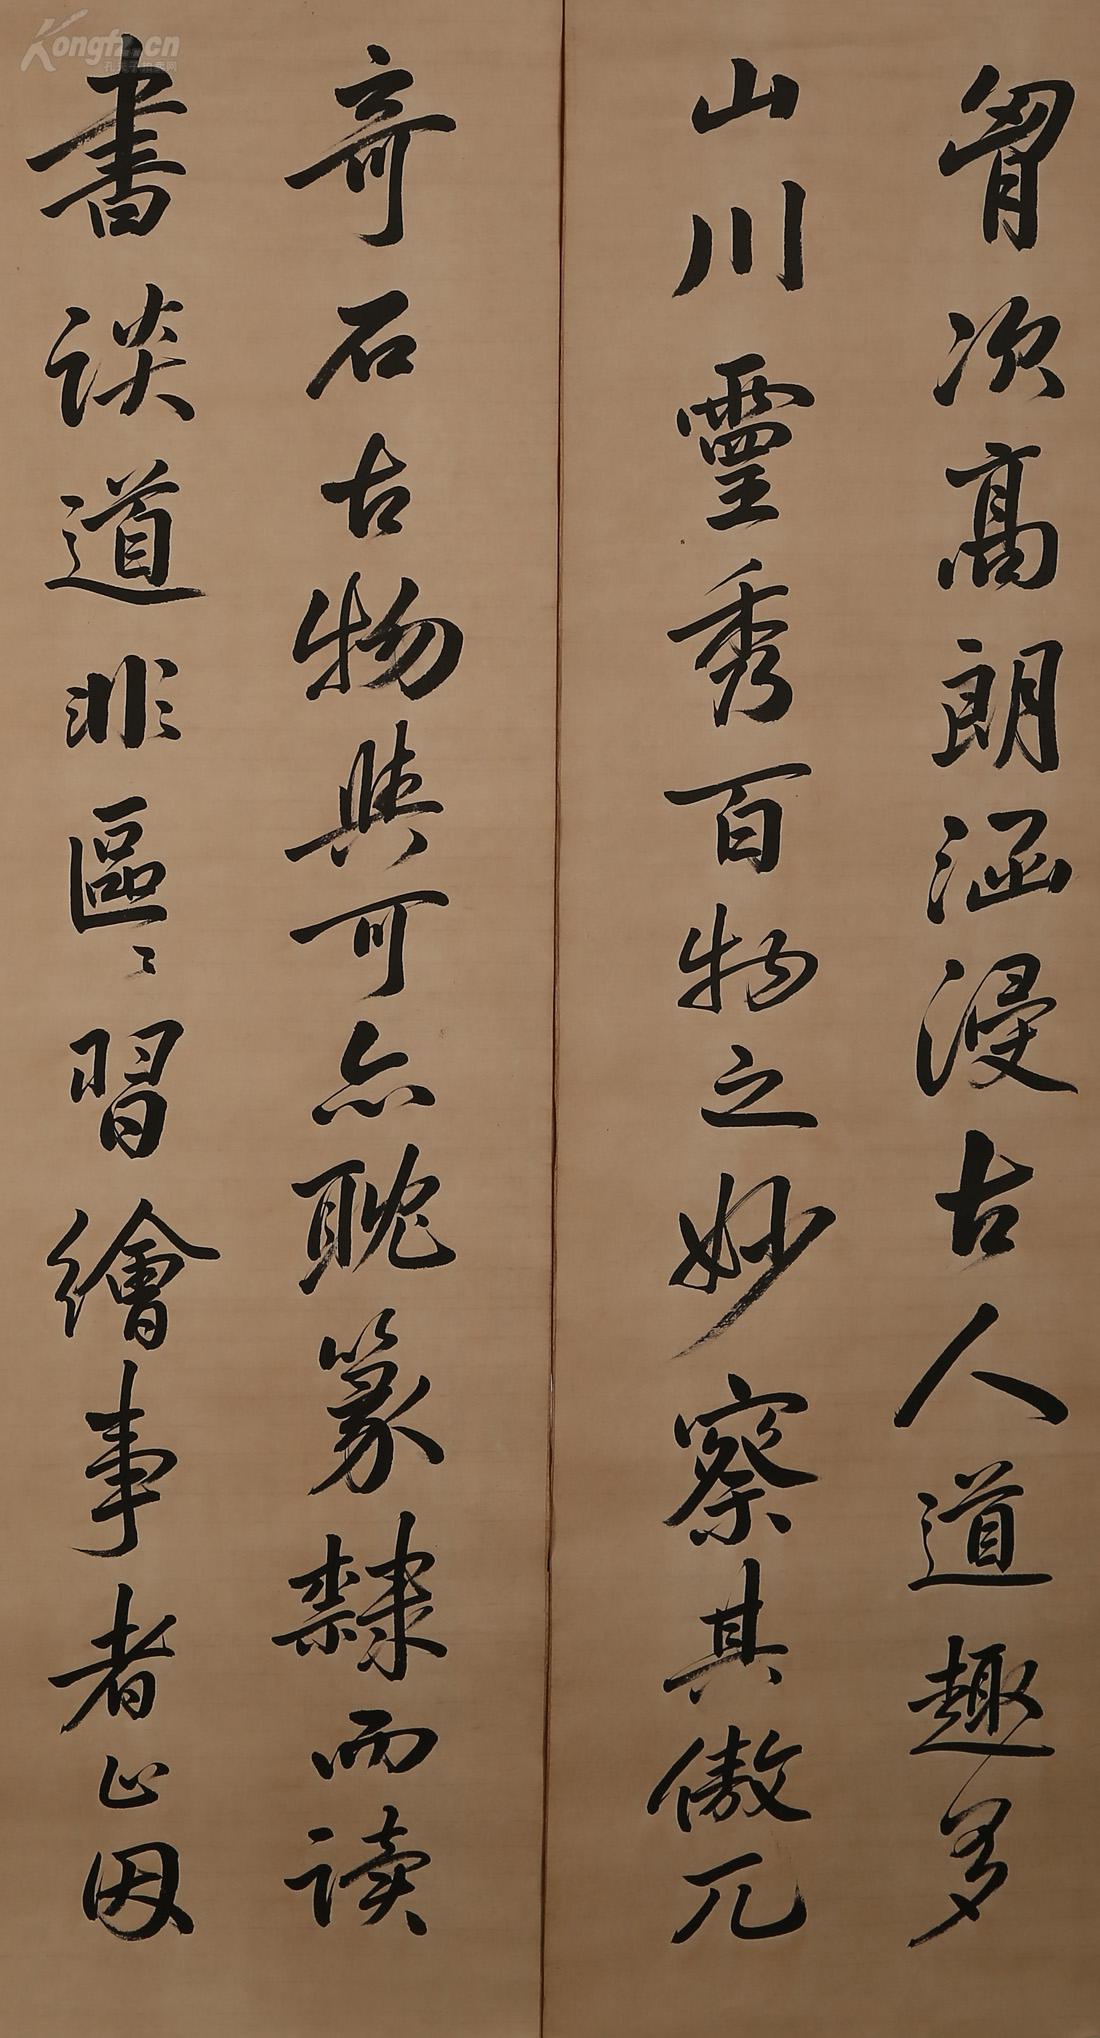 胷次高朗涵浸古人道趣多
山川靈秀百物之妙察其傲兀
奇石古物與可亦耽篆隸而读
書談道非區〻習繪事者止因
Kongfz.cn